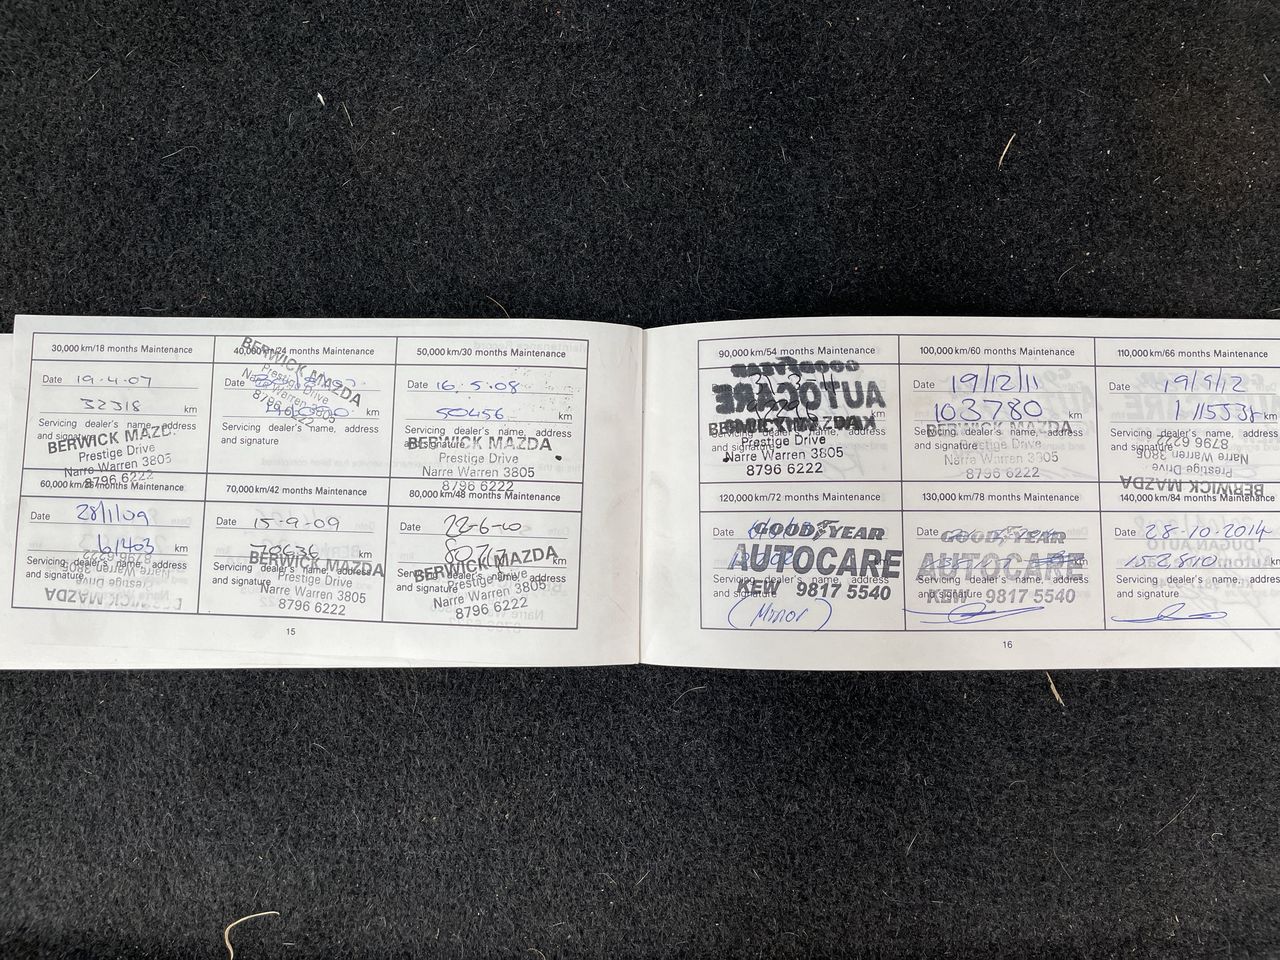 30,000 km/18 months Maintenance
Date 19.4.07
32318 km
Servicing dealer's name, address
and signature
BERWICK MAZDA
Prestige Drive
Narre Warren 3805
8796 6222
40,000 km/24 months Maintenance
Date
km
Servicing dealer's name, address
and signature
BERWICK MAZDA
Prestige Drive
Narre Warren 3805
8796 6222
50,000 km/30 months Maintenance
Date 16.5.08
50456 km
Servicing dealer's name, address
and signature
BERWICK MAZDA
Prestige Drive
Narre Warren 3805
8796 6222
60,000 km/36 months Maintenance
Date 28/1/09
61403 km
Servicing dealer's name, address
and signature
BERWICK MAZDA
Prestige Drive
Narre Warren 3805
8796 6222
70,000 km/42 months Maintenance
Date 15-9-09
70636 km
Servicing dealer's name, address
and signature
BERWICK MAZDA
Prestige Drive
Narre Warren 3805
8796 6222
80,000 km/48 months Maintenance
Date 22-6-10
km
Servicing dealer's name, address
and signature
BERWICK MAZDA
Prestige Drive
Narre Warren 3805
8796 6222
15
90,000 km/54 months Maintenance
GOODYEAR
AUTOCARE
Servicing dealer's name, address
and signature
BERWICK MAZDA
Prestige Drive
Narre Warren 3805
8796 6222
100,000 km/60 months Maintenance
Date 19/12/11
103780 km
Servicing dealer's name, address
and signature
BERWICK MAZDA
Prestige Drive
Narre Warren 3805
8796 6222
110,000 km/66 months Maintenance
Date 19/9/12
115538 km
Servicing dealer's name, address
and signature
BERWICK MAZDA
Prestige Drive
Narre Warren 3806
8796 6222
120,000 km/72 months Maintenance
Date
GOODYEAR
AUTOCARE
KEW 9817 5540
Servicing dealer's name, address
and signature
(Minor)
130,000 km/78 months Maintenance
Date
GOODYEAR
AUTOCARE
KEW 9817 5540
Servicing dealer's name, address
and signature
140,000 km/84 months Maintenance
Date 28-10-2014
152,810 km
Servicing dealer's name, address
and signature
16